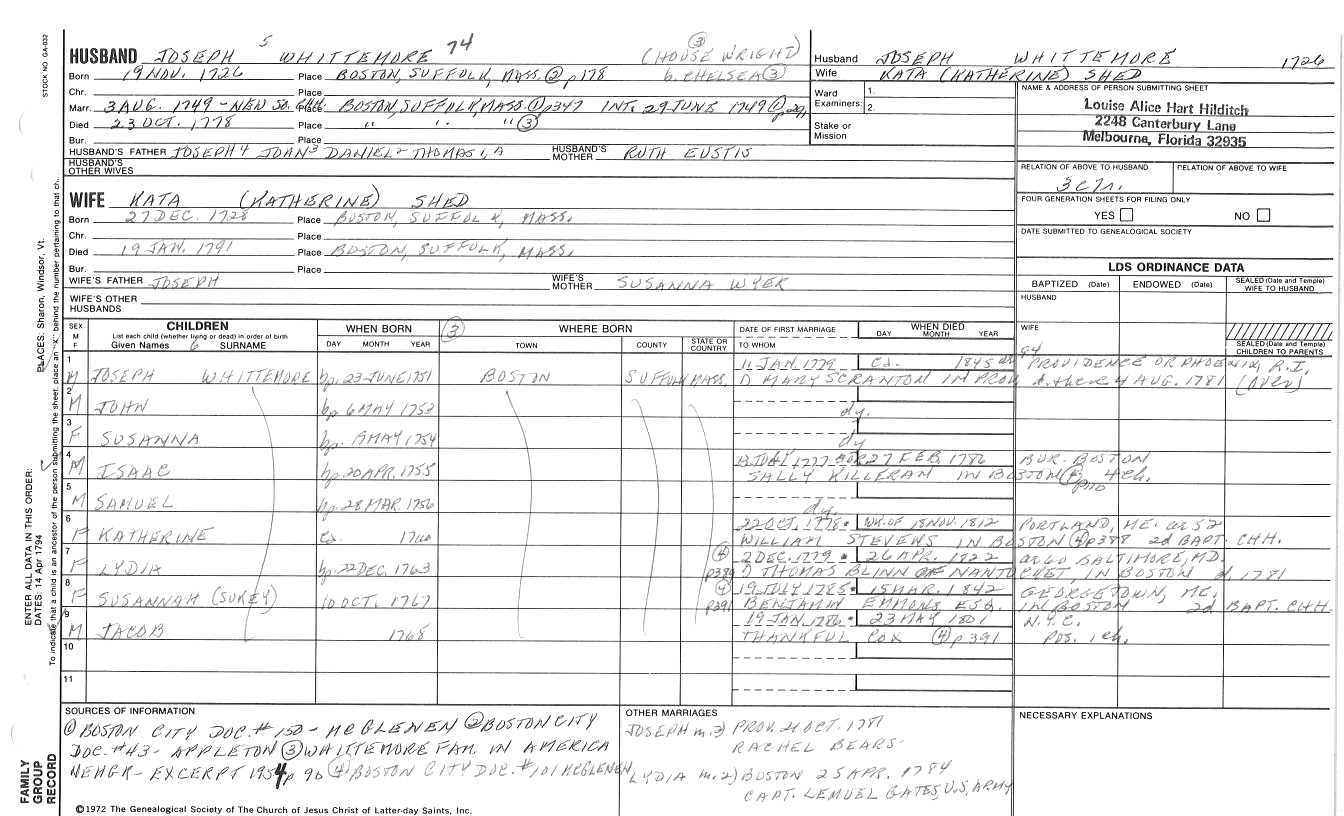 STOCK NO. GA-032
HUSBAND JOSEPH 5 WHITTEMORE 74 (HOUSE WRIGHT) ③
Born 19 NOV. 1726 Place BOSTON, SUFFOLK, MASS. ② p178 b. CHELSEA ③
Chr. Place
Marr. 3 AUG. 1749 - NEW SO. CHH. Place BOSTON, SUFFOLK, MASS. ① p347 INT. 29 JUNE 1749 ①
Died 23 OCT. 1778 Place " " " ③
Bur. Place
HUSBAND'S FATHER JOSEPH 4 JOHN 3 DANIEL 2 THOMAS 1, A HUSBAND'S MOTHER RUTH EUSTIS
HUSBAND'S OTHER WIVES
Husband JOSEPH WHITTEMORE 1726
Wife KATA (KATHERINE) SHED
Ward Examiners: 1.
2.
Stake or Mission
NAME & ADDRESS OF PERSON SUBMITTING SHEET
Louise Alice Hart Hilditch
2248 Canterbury Lane
Melbourne, Florida 32935
RELATION OF ABOVE TO HUSBAND RELATION OF ABOVE TO WIFE
FOUR GENERATION SHEETS FOR FILING ONLY
YES NO
DATE SUBMITTED TO GENEALOGICAL SOCIETY
WIFE KATA (KATHERINE) SHED
Born 27 DEC. 1728 Place BOSTON, SUFFOLK, MASS.
Chr. Place
Died 19 JAN. 1791 Place BOSTON, SUFFOLK, MASS.
Bur. Place
WIFE'S FATHER JOSEPH WIFE'S MOTHER SUSANNA WYER
WIFE'S OTHER HUSBANDS
LDS ORDINANCE DATA
BAPTIZED (Date) ENDOWED (Date) SEALED (Date and Temple) WIFE TO HUSBAND
HUSBAND
WIFE
SEALED (Date and Temple) CHILDREN TO PARENTS
SEX M F CHILDREN WHEN BORN ③ WHERE BORN DATE OF FIRST MARRIAGE WHEN DIED
List each child (whether living or dead) in order of birth
Given Names 6 SURNAME DAY MONTH YEAR TOWN COUNTY STATE OR COUNTRY TO WHOM DAY MONTH YEAR
1 11 JAN. 1779 Ca. 1845 ae 94 PROVIDENCE OR PHOENIX, R.I.
M JOSEPH WHITTEMORE bp. 23 JUNE 1751 BOSTON SUFFOLK MASS. D MARY SCRANTON IN PROV. d. there 4 AUG. 1781 (OVER)
2 M JOHN bp 6 MAY 1753 dy.
3 F SUSANNA bp. MAY 1754 dy
4 JULY 1777 27 FEB. 1786 BUR. BOSTON
M ISAAC bp 20 APR. 1755 SALLY KILLERAN IN BOSTON p110 4 ch.
5 M SAMUEL bp. 28 MAR. 1756 dy.
6 22 OCT. 1778 WK. OF 18 NOV. 1812 PORTLAND, ME. ae 52
F KATHERINE Ca. 1760 WILLIAM STEVENS IN BOSTON ④ p388 2d BAPT. CHH.
7 ④ 2 DEC. 1779 26 APR. 1822 ae 60 BALTIMORE, MD.
F LYDIA bp. 22 DEC. 1763 p389 D THOMAS BLINN OF NANTUCKET, IN BOSTON d 1781
8 ④ 19 JULY 1785 15 MAR. 1842 GEORGETOWN, ME.
F SUSANNAH (SUKEY) 10 OCT. 1767 p391 BENJAMIN EMMONS, ESQ. IN BOSTON 2d BAPT. CHH.
9 19 JAN. 1786 23 MAY 1801 N.Y.C.
M JACOB 1768 THANKFUL COX ④ p391 POS. 1 ch.
10
11
SOURCES OF INFORMATION
① BOSTON CITY DOC. # 150 - MCGLENEN ② BOSTON CITY
DOC. # 43 - APPLETON ③ WHITTEMORE FAM. IN AMERICA
NEHGR - EXCERPT 1954 p 90 ④ BOSTON CITY DOC. # 101 MCGLENEN
OTHER MARRIAGES
JOSEPH m. 2) PROV. 21 OCT. 1781
RACHEL BEARS
LYDIA m. 2) BOSTON 25 APR. 1784
CAPT. LEMUEL GATES, U.S. ARMY
NECESSARY EXPLANATIONS
©1972 The Genealogical Society of The Church of Jesus Christ of Latter-day Saints, Inc.
FAMILY GROUP RECORD
ENTER ALL DATA IN THIS ORDER:
DATES: 14 Apr 1794
PLACES: Sharon, Windsor, Vt.
To indicate that a child is an ancestor of the person submitting the sheet place an "X" behind the number pertaining to that ch.